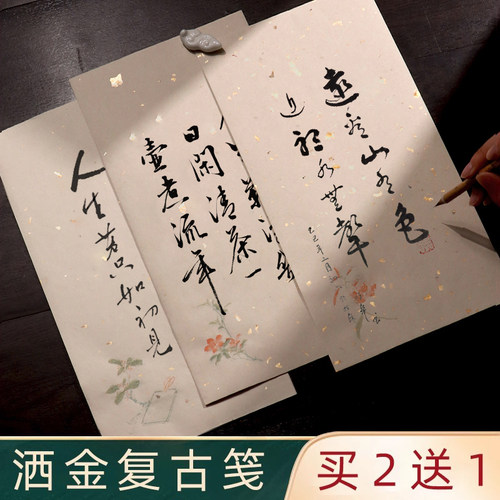 遠看山有色
近聽水無聲
日閑清茶一
壺煮流年
人生若只如初見
洒金复古笺
买2送1